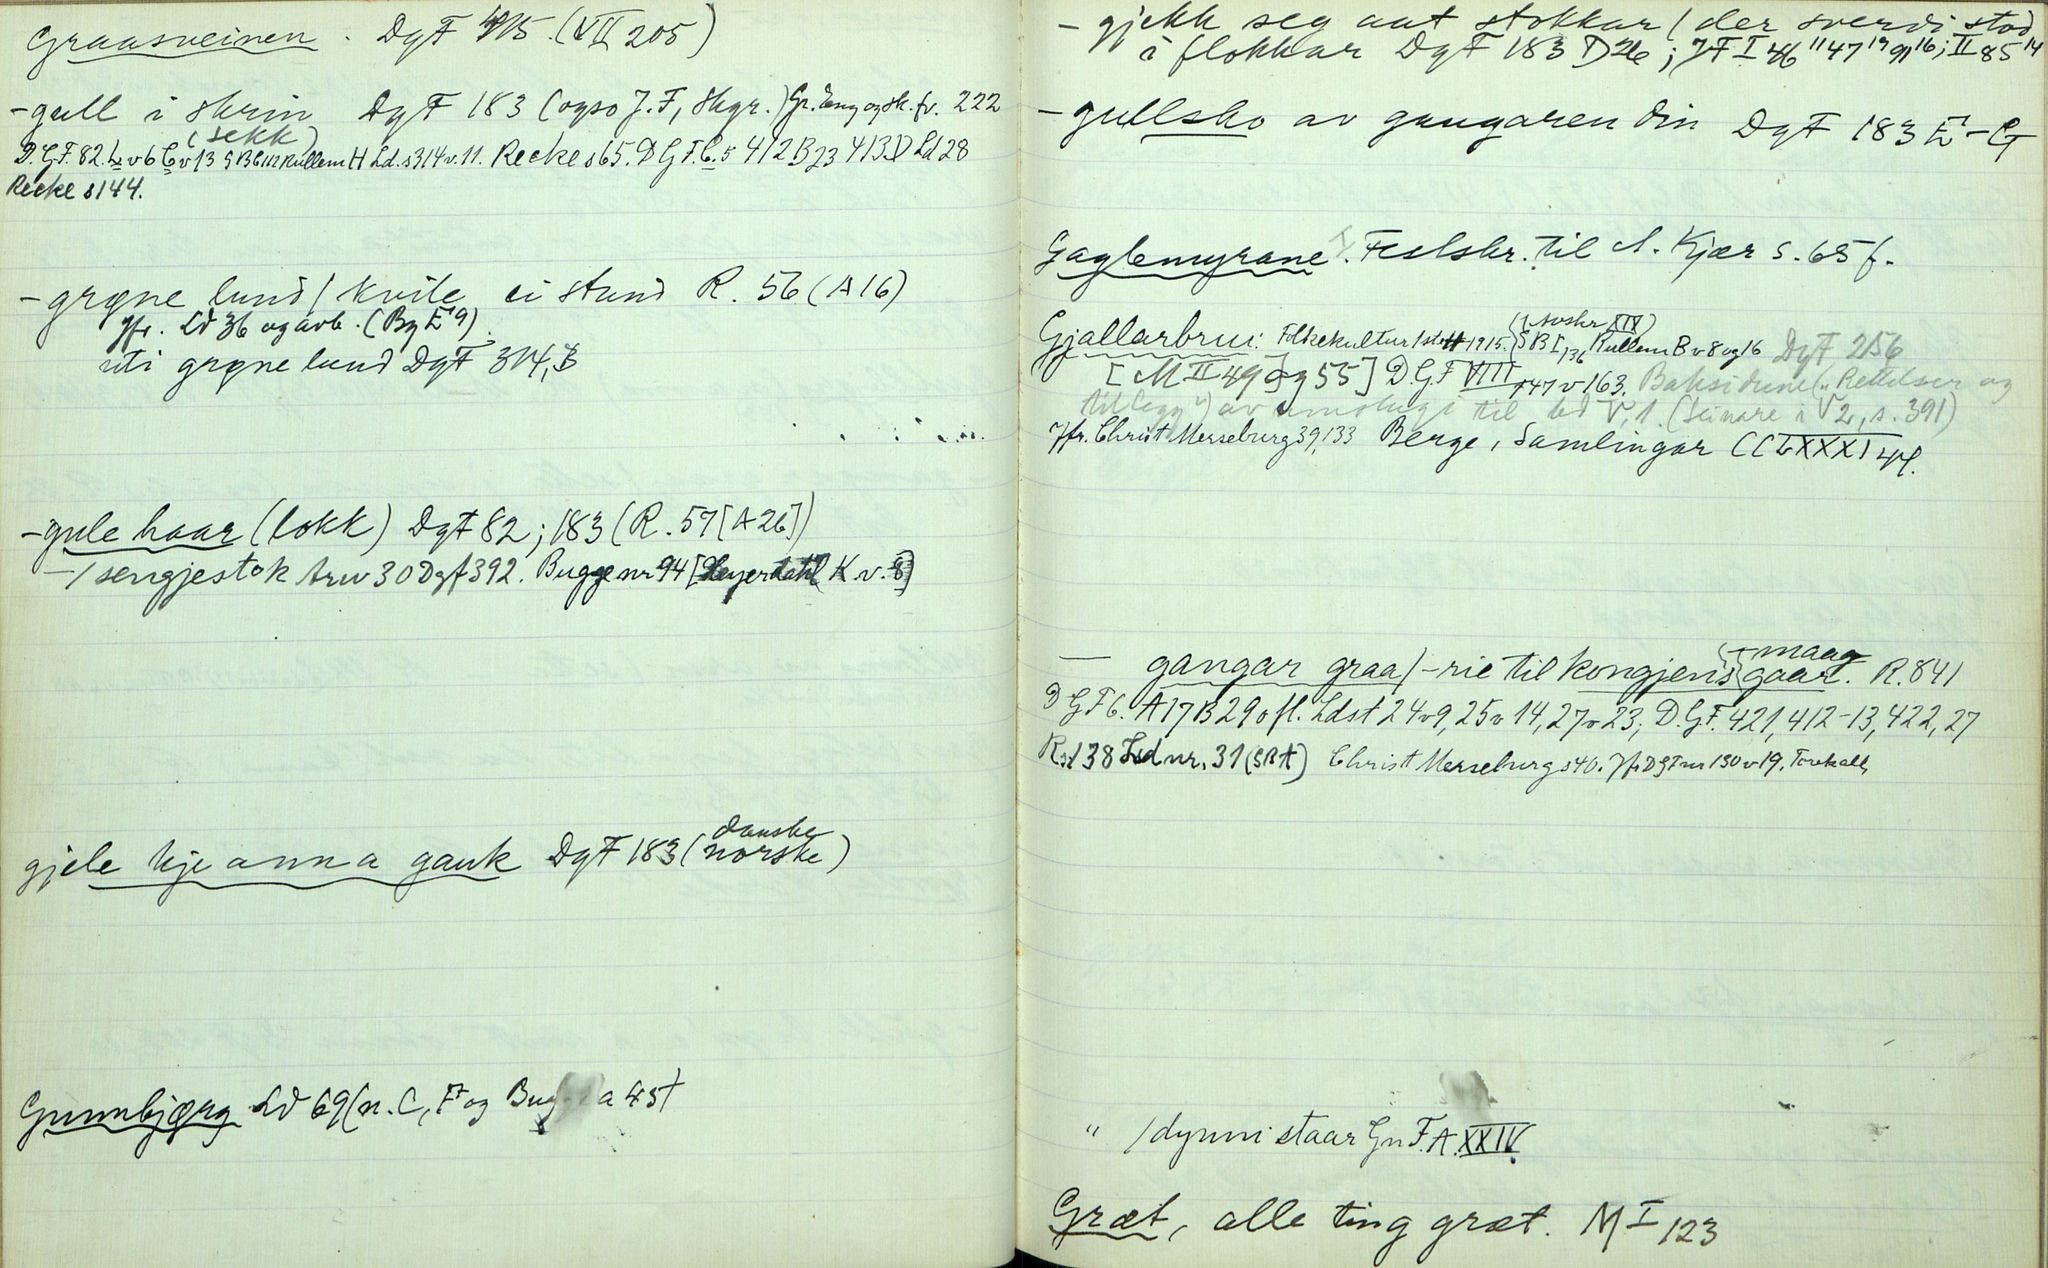 Graasveinen. DgF 415. (VII 205)
- gull i skrin DgF 183 (ogso J.F, Skgr.) Gr. Eng og sk. fv. 222
(sekk)
D.G.F. 82. L v 6 C v 13 Rullem H Ld. s 314 v. 11. Recke s 65. D G F. C. 5 412 B 23 413 D Ld 28
Recke s 144.
- grøne lund / kvile ei stund R. 56 (A 16)
Jfr. Ld 36 og avb. (Bg E 9)
uti grøne lund DgF 314, B
- gule haar (lokk) DgF 82; 183 (R. 57 [A 26])
- / sengjestok Arw 30 DgF 392. Bugge nr 94 [Heyerdahl K v. 8]
gjele kje anna gauk DgF 183 (norske)
danske
Gunnbjørg Ld 69 (n. C, F og a 4st
- gjekk seg aat stokkar / der sverdi stod
i flokkar DgF 183 D 26; JF I 46 11 47 19 91 16; II 85 14
- gullsko av gangaren din DgF 183 E - G
Gaglemyrane. Festskr. til A. Kjær s. 65 f.
(+ Avskr XIX)
Gjallarbrui: Folkekultur 1st 1915. S B I, 136 Rullem B v 8 og 16 DgF 256
[M II 49 og 55] D.G.F VIII s 47 v 163. Baksidune ("Rettelser og
tillegg") av omslagi til bd V, 1. (Seinare i V 2, s. 391)
Jfr. Christ Merseburg 39, 133 Berge, Samlingar CCLXXXI 44.
(+ maag
— gangar graa / - rie til kongjens gaar. R. 841
D G F 6. A 17 B 29 o fl. Ldst 24 v 9, 25 v 14, 27 v 23, D.G.F. 421, 412-13, 422, 27
R st 38 Ld nr. 31 (SBt) Christ Merseburg s 40. Jfr DGF nr 130 v 19.
" / dynni staar Gn F. A. XXIV.
Græt, alle ting græt. M I 123